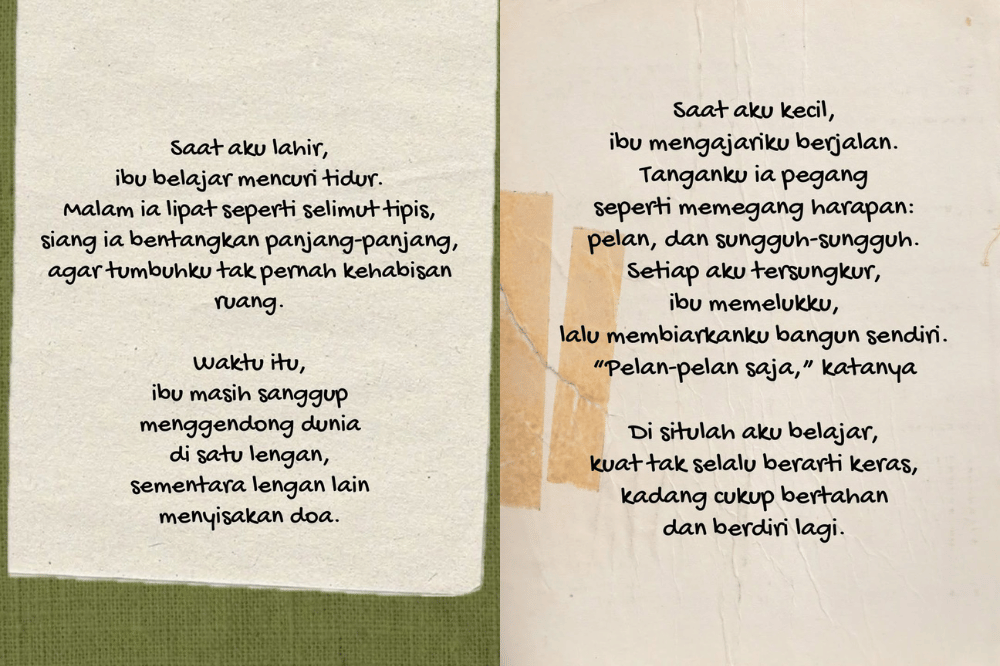 Saat aku lahir,
ibu belajar mencuri tidur.
Malam ia lipat seperti selimut tipis,
siang ia bentangkan panjang-panjang,
agar tumbuhku tak pernah kehabisan
ruang.
Waktu itu,
ibu masih sanggup
menggendong dunia
di satu lengan,
sementara lengan lain
menyisakan doa.
Saat aku kecil,
ibu mengajariku berjalan.
Tanganku ia pegang
seperti memegang harapan:
pelan, dan sungguh-sungguh.
Setiap aku tersungkur,
ibu memelukku,
lalu membiarkanku bangun sendiri.
“Pelan-pelan saja,” katanya
Di situlah aku belajar,
kuat tak selalu berarti keras,
kadang cukup bertahan
dan berdiri lagi.